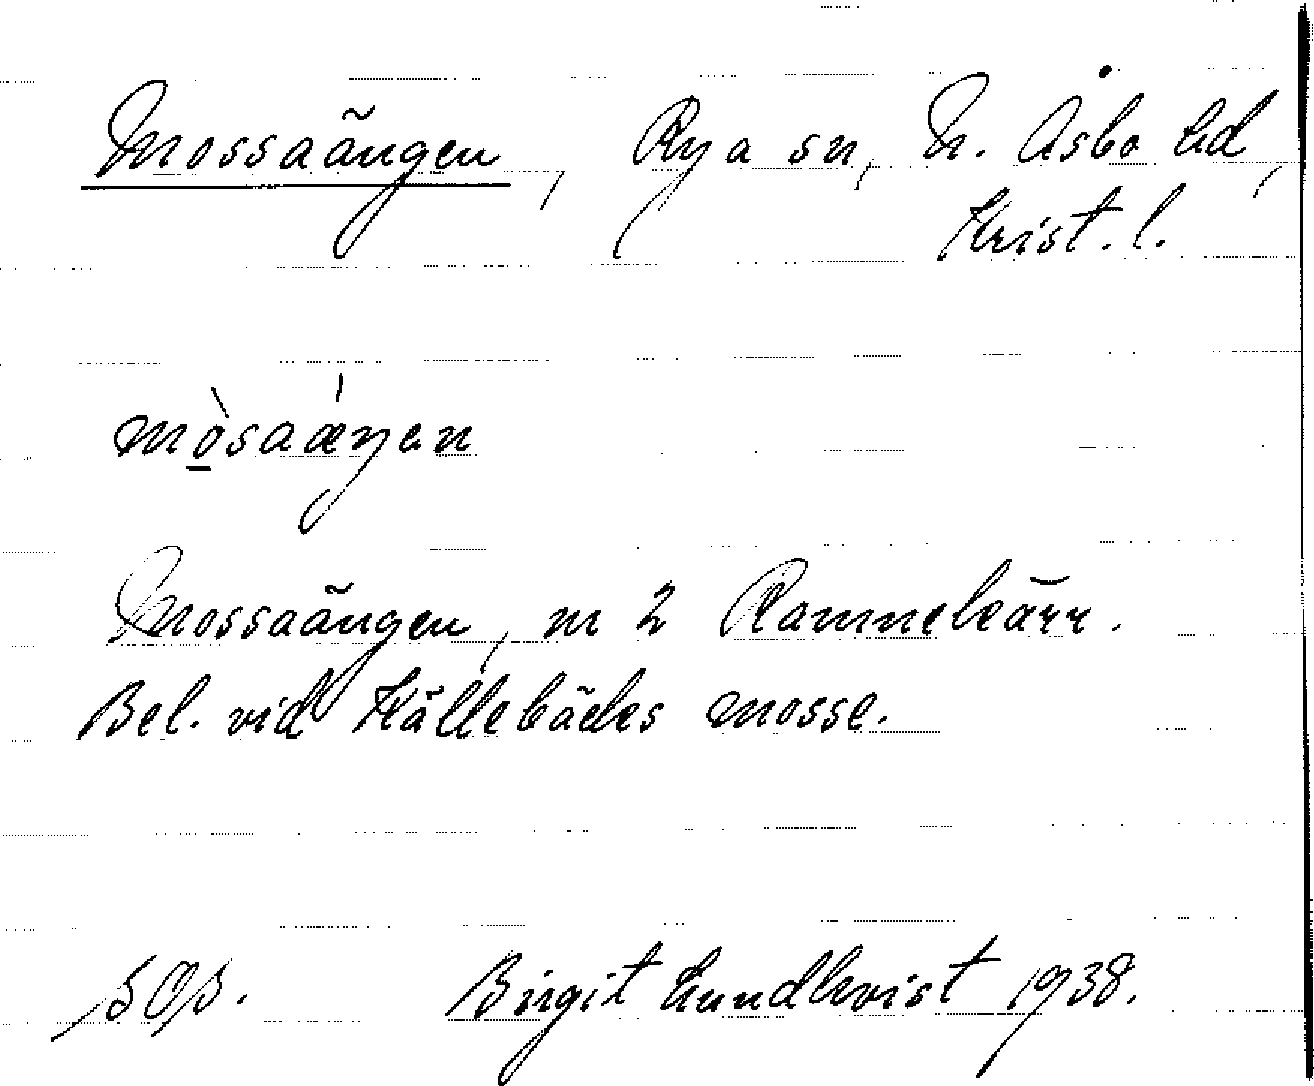 Mossaängen, Rya sn, N. Åsbo hd,
Krist. l.
mò̲saǽŋen
Mossaängen, nr 2 Ramnekärr.
Bel. vid Källebäcks mosse.
SOS. Birgit Lundkvist 1938.